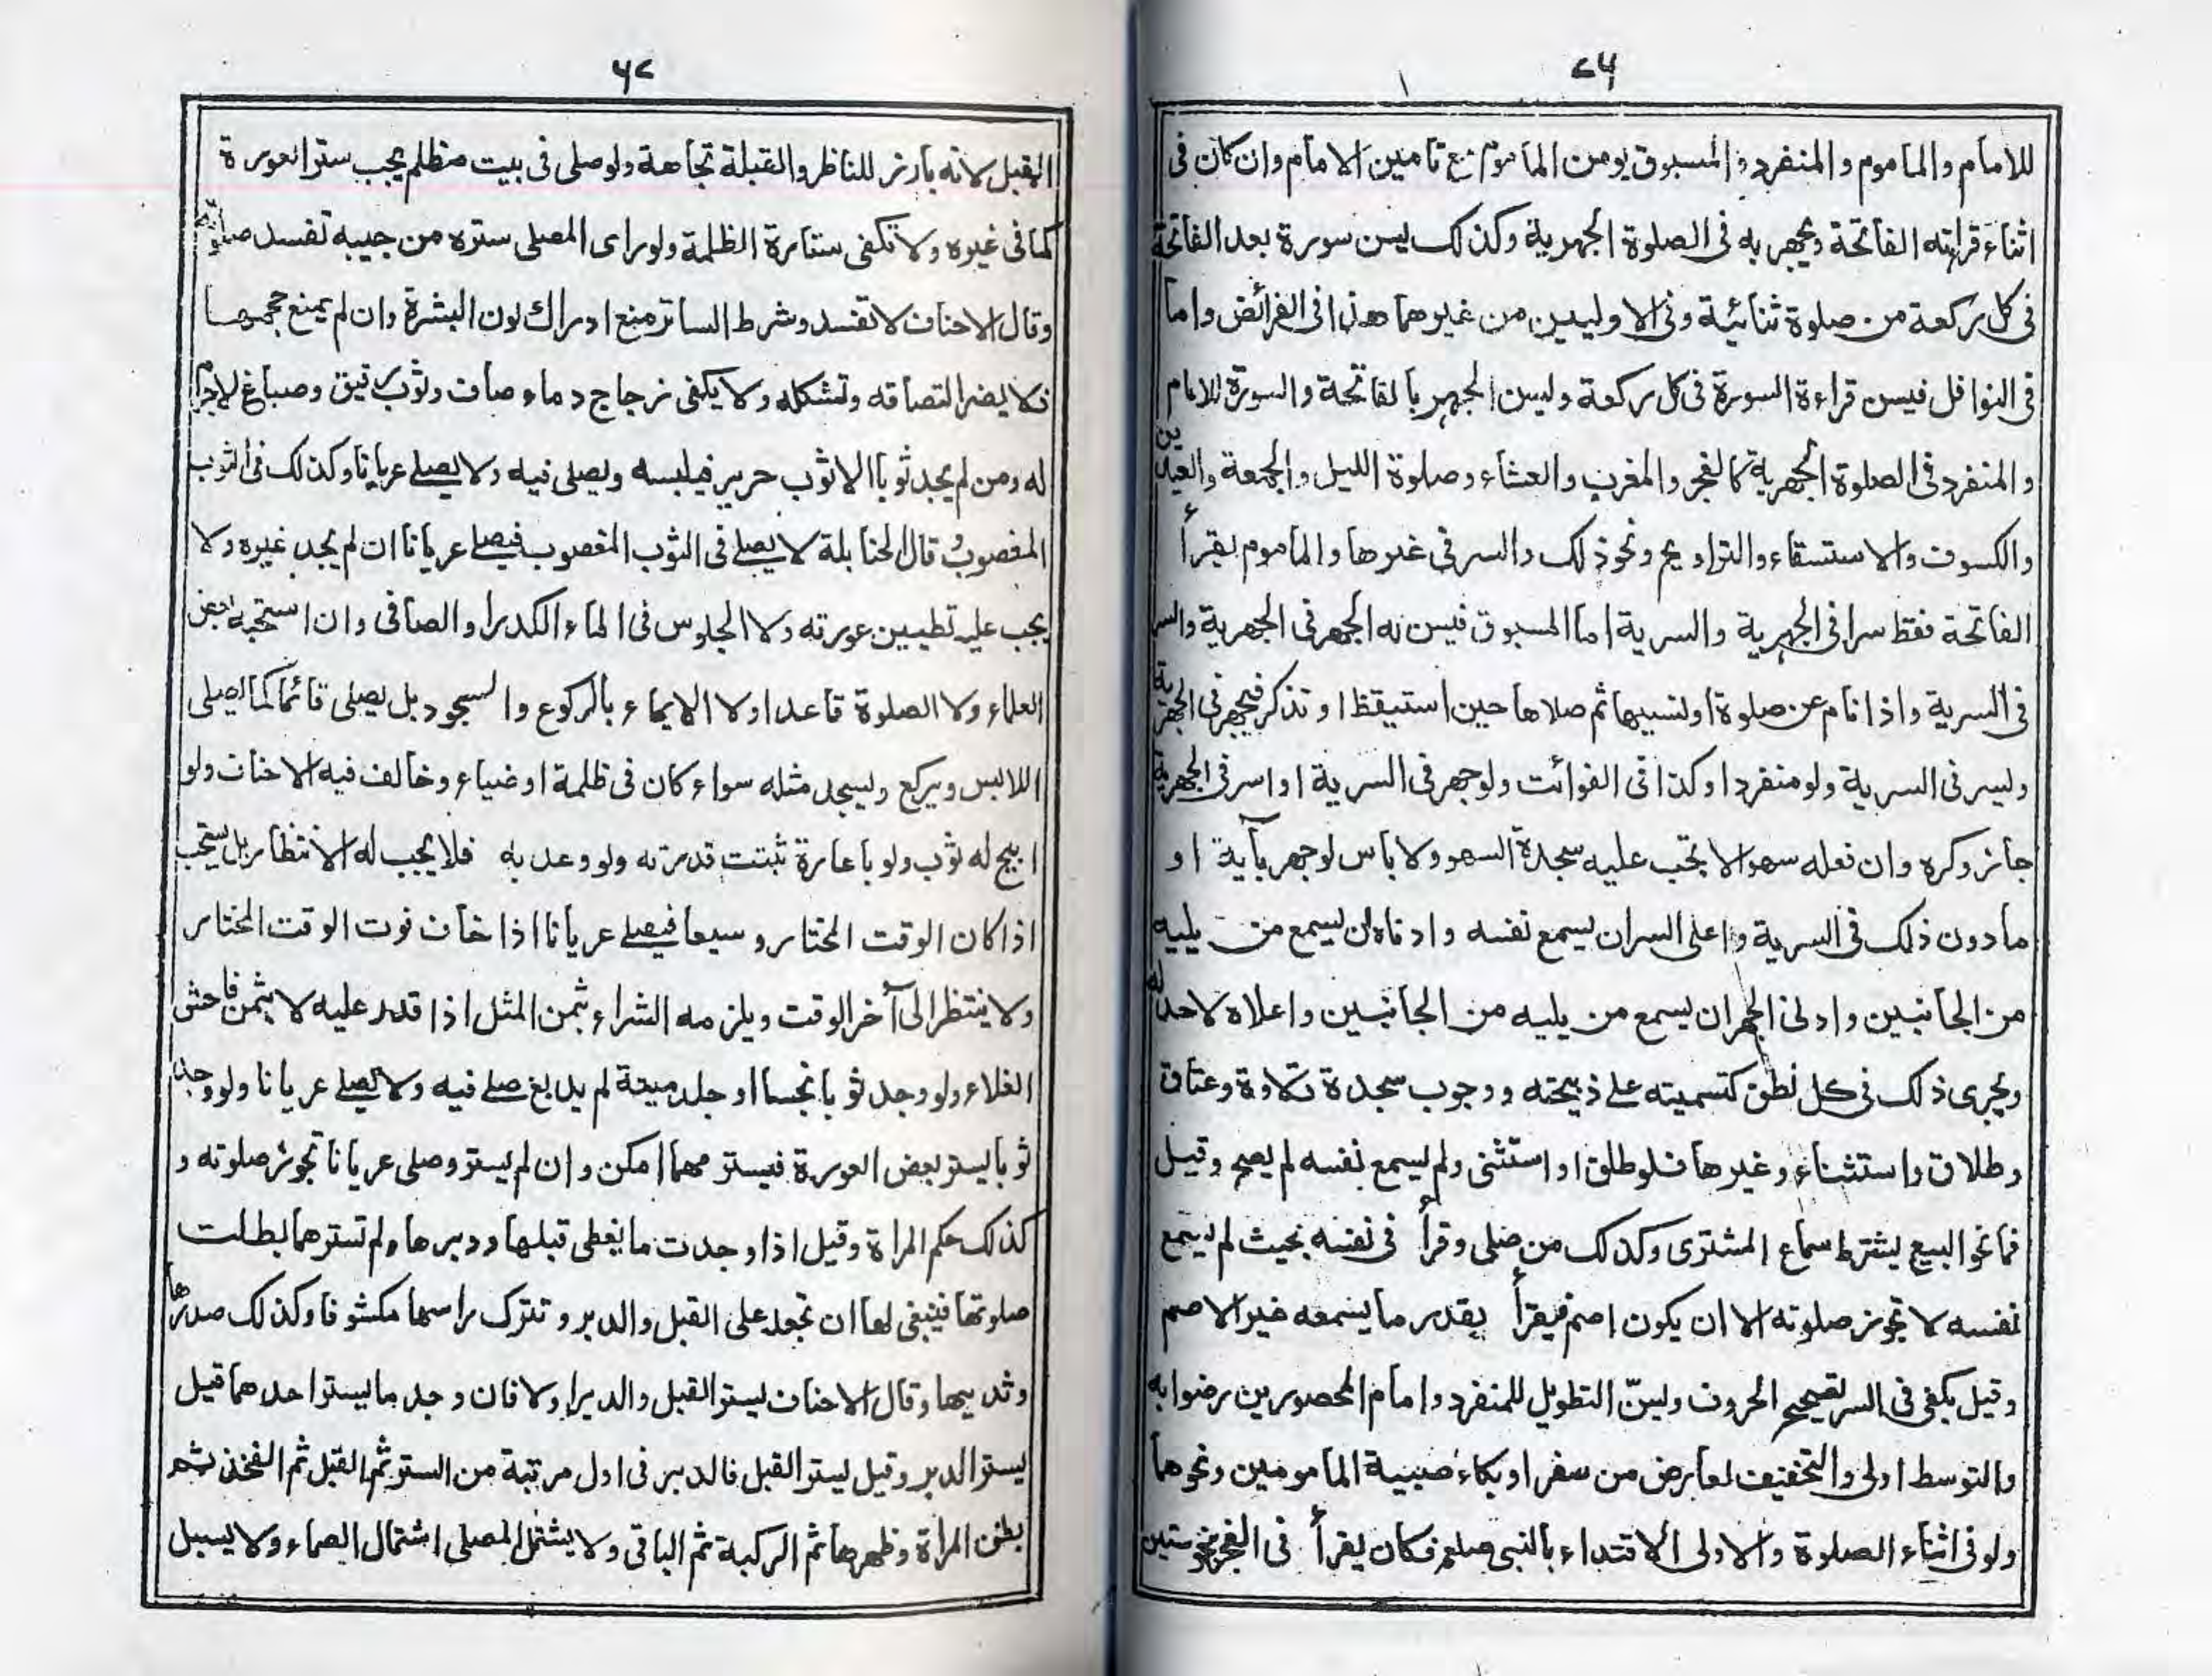 ٤٦
للامام والماموم والمنفرد والمسبوق يومن الماموم مع تامين الامام وان كان فى
اثناء قراءته الفاتحة ويجهر به فى الصلوة الجهرية وكذلك يسن سورة بعد الفاتحة
فى كل ركعة من صلوة ثنائية وفى الاوليين من غيرهما هذا فى الفرائض واما
فى النوافل فيسن قراءة السورة فى كل ركعة ويسن الجهر بالفاتحة والسورة للامام
والمنفرد فى الصلوة الجهرية كالفجر والمغرب والعشاء وصلوة الليل والجمعة والعيدين
والكسوف والاستسقاء والتراويح ونحو ذلك والسر فى غيرها والماموم يقرأ
الفاتحة فقط سرا فى الجهرية والسرية اما المسبوق فيسن له الجهر فى الجهرية والسر
فى السرية واذا نام عن صلوة او نسيها ثم صلاها حين استيقظ او تذكر فيجهر فى الجهرية
ويسر فى السرية ولو منفردا وكذا فى الفوائت ولو جهر فى السرية او اسر فى الجهرية
جائز وكره وان فعله سهوا لا تجب عليه سجدة السهو ولا باس لو جهر بآية او
ما دون ذلك فى السرية واعلى السر ان يسمع نفسه وادناه ان يسمع من يليه
من الجانبين وادنى الجهر ان يسمع من يليه من الجانبين واعلاه لا حد له
ويجرى ذلك فى كل نطق كتسميته على ذبيحته ووجوب سجدة تلاوة وعتاق
وطلاق واستثناء وغيرها فلو طلق او استثنى ولم يسمع نفسه لم يصح وقيل
فما نحو البيع يشترط سماع المشترى وكذلك من صلى وقرأ فى نفسه بحيث لم يسمع
نفسه لا تجوز صلوته الا ان يكون اصم فيقرأ بقدر ما يسمعه غير الاصم
وقيل يكفى فى السر تصحيح الحروف ويسنّ التطويل للمنفرد وامام المحصورين رضوا به
والتوسط اولى والتخفيف لعارض من سفر او بكاء صبية المامومين ونحوهما
ولو فى اثناء الصلوة والاولى الاقتداء بالنبى صلعم فكان يقرأ فى الفجر نحو ستين
القبل لانه بارز للناظر والقبلة تجاهه ولو صلى فى بيت مظلم يجب ستر العورة
كما فى غيره ولا تكفى ستارة الظلمة ولو راى المصلى ستره من جيبه تفسد صلوته
وقال الاحناف لا تفسد وشرط الساتر منع ادراك لون البشرة وان لم يمنع حجمها
فلا يضر التصاقه وتشكله ولا يكفى زجاج وماء صاف وثوب رقيق وصباغ لا جرم
له ومن لم يجد ثوبا الا ثوب حرير فيلبسه ويصلى فيه ولا يصلے عريانا وكذلك فى الثوب
المغصوب قال الحنابلة لا يصلے فى الثوب المغصوب فيصلے عريانا ان لم يجد غيره ولا
يجب عليه تطيين عورته ولا الجلوس فى الماء الكدر او الصافى وان استحبه بعض
العلماء ولا الصلوة قاعدا ولا الايماء بالركوع والسجود بل يصلى قائما كما يصلى
اللابس ويركع ويسجد مثله سواء كان فى ظلمة او ضياء وخالف فيه الاحناف ولو
ابيح له ثوب ولو باعارة ثبتت قدرته ولو وعد به فلا يجب له الانتظار بل يستحب
اذا كان الوقت المختار وسيعا فيصلے عريانا اذا خاف فوت الوقت المختار
ولا ينتظر الى آخر الوقت ويلزمه الشراء بثمن المثل اذا قدر عليه لا بثمن فاحش
الغلاء ولو وجد ثوبا نجسا او جلد ميتة لم يدبغ صلے فيه ولا يصلے عريانا ولو وجد
ثوبا يستر بعض العورة فيستر مهما امكن وان لم يستر وصلى عريانا تجوز صلوته و
كذلك حكم المراة وقيل اذا وجدت ما يغطى قبلها ودبرها ولم تسترهما بطلت
صلوتها فينبغى لها ان تجعله على القبل والدبر وتترك راسها مكشوفا وكذلك صدرها
وثدييها وقال الاحناف يستر القبل والدبر اولا فان وجد ما يستر احدهما قيل
يستر الدبر وقيل يستر القبل فالدبر فى اول مرتبة من الستر ثم القبل ثم الفخذ ثم
بطن المراة وظهرها ثم الركبة ثم الباقى ولا يشتمل المصلى اشتمال الصماء ولا يسبل